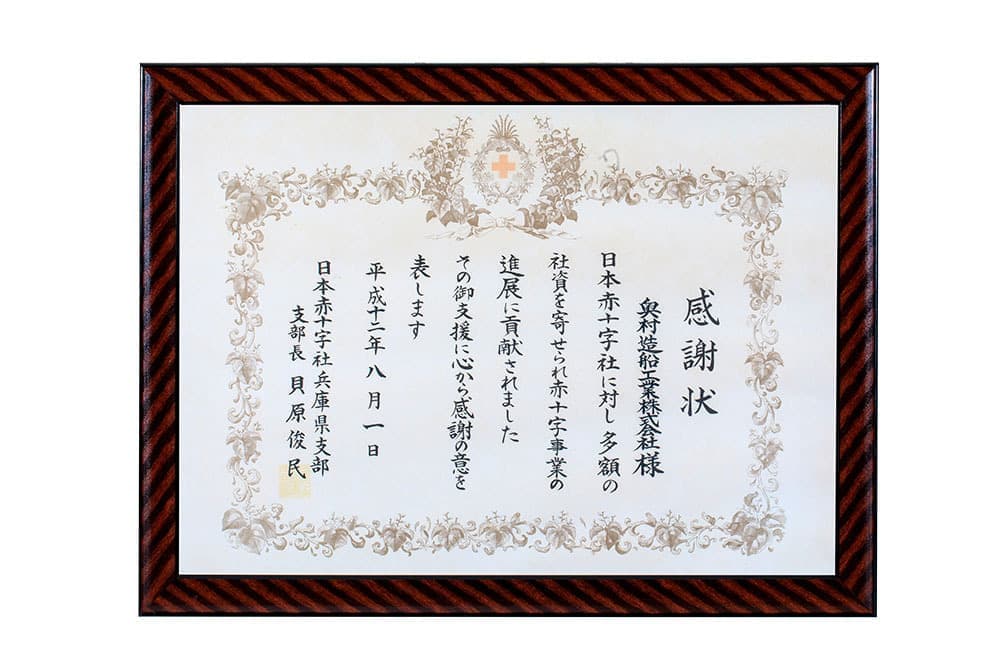 感謝状
奥村造船工業株式会社様
日本赤十字社に対し多額の
社資を寄せられ赤十字事業の
進展に貢献されました
その御支援に心から感謝の意を
表します
平成十二年八月一日
日本赤十字社兵庫県支部
支部長 貝原俊民